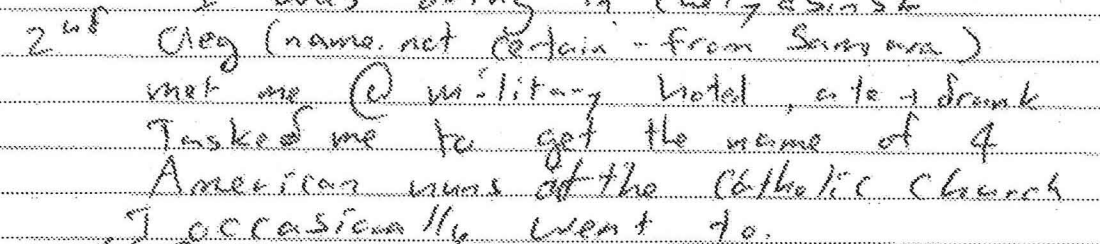 2nd Oleg (name not certain - from Samara)
met me @ military hotel, ate + drank
Tasked me to get the name of 4
American nuns at the Catholic Church
I occasionally went to.